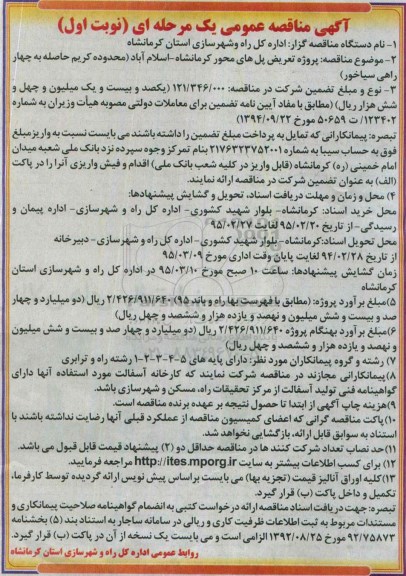 آگهی مناقصه عمومی یک مرحله ای (نوبت اول)
۱- نام دستگاه مناقصه گزار: اداره کل راه وشهرسازی استان کرمانشاه
۲- موضوع مناقصه: پروژه تعریض پل های محور کرمانشاه-اسلام آباد (محدوده کریم حاصله به چهار
راهی سیاخور)
۳- نوع و مبلغ تضمین شرکت در مناقصه: ۱۲۱/۳۴۶/۰۰۰ (یکصد و بیست و یک میلیون و چهل و
شش هزار ریال) (مطابق با مفاد آیین نامه تضمین برای معاملات دولتی مصوبه هیأت وزیران به شماره
۱۲۳۴۰۲/ ت ۵۰۶۵۹ مورخ ۱۳۹۴/۰۹/۲۲)
تبصره: پیمانکارانی که تمایل به پرداخت مبلغ تضمین را داشته باشند می بایست نسبت به واریز مبلغ
فوق به حساب سیبا به شماره ۲۱۷۶۴۳۳۷۵۲۰۰۱ بنام تمرکز وجوه سپرده نزد بانک ملی شعبه میدان
امام خمینی (ره) کرمانشاه (قابل واریز در کلیه شعب بانک ملی) اقدام و فیش واریزی آنرا را در پاکت
(الف) به عنوان تضمین شرکت در مناقصه ارائه نمایند.
۴) محل و زمان و مهلت دریافت اسناد، تحویل و گشایش پیشنهادها:
محل خرید اسناد: کرمانشاه- بلوار شهید کشوری- اداره کل راه و شهرسازی- اداره پیمان و
رسیدگی- از تاریخ ۹۵/۰۲/۲۰ لغایت ۹۵/۰۲/۲۷
محل تحویل اسناد: کرمانشاه- بلوار شهید کشوری- اداره کل راه و شهرسازی- دبیرخانه
از تاریخ ۹۴/۰۲/۲۸ لغایت پایان وقت اداری مورخ ۹۵/۰۳/۰۹
زمان گشایش پیشنهادها: ساعت ۱۰ صبح مورخ ۹۵/۰۳/۱۰ در اداره کل راه و شهرسازی استان
کرمانشاه
۵)مبلغ برآورد پروژه: (مطابق با فهرست بها راه و باند ۹۵) ۲/۴۲۶/۹۱۱/۶۴۰ ریال (دو میلیارد و چهار
صد و بیست و شش میلیون و نهصد و یازده هزار و ششصد و چهل ریال)
۶)مبلغ برآورد بهنگام پروژه ۲/۴۲۶/۹۱۱/۶۴۰ ریال (دو میلیارد و چهار صد و بیست و شش میلیون
و نهصد و یازده هزار و ششصد و چهل ریال)
۷) رشته و گروه پیمانکاران مورد نظر: دارای پایه های ۵-۴-۳-۲-۱ رشته راه و ترابری
۸)پیمانکارانی مجازند در مناقصه شرکت نمایند که کارخانه آسفالت مورد استفاده آنها دارای
گواهینامه فنی تولید آسفالت از مرکز تحقیقات راه، مسکن و شهرسازی باشد.
۹)هزینه چاپ آگهی از ابتدا تا حصول نتیجه بر عهده برنده مناقصه است.
۱۰) پاکت مناقصه گرانی که اعضای کمیسیون مناقصه از عملکرد قبلی آنها رضایت نداشته باشند با
استناد به سوابق قابل ارائه، بازگشایی نخواهد شد.
۱۱)حد نصاب تعداد شرکت کنند ها در مناقصه حداقل دو (۲) پیشنهاد قیمت قابل قبول می باشد.
۱۲) برای کسب اطلاعات بیشتر به سایت http://ites.mporg.ir مراجعه فرمایید.
۱۳)کلیه اوراق آنالیز قیمت (تجزیه بها) می بایست براساس پیش نویس ارائه گردیده توسط کارفرما،
تکمیل و داخل پاکت (ب) قرار گیرد.
تبصره: جهت دریافت اسناد مناقصه ارائه درخواست کتبی به انضمام گواهینامه صلاحیت پیمانکاری و
مستندات مربوط به ثبت اطلاعات ظرفیت کاری و ریالی در سامانه ساجار به استناد بند (۵) بخشنامه
۹۲/۷۵۸۷۳ مورخ ۱۳۹۲/۰۸/۲۵ الزامی است و می بایست یک نسخه از آن در پاکت (ب) قرار گیرد.
روابط عمومی اداره کل راه و شهرسازی استان کرمانشاه